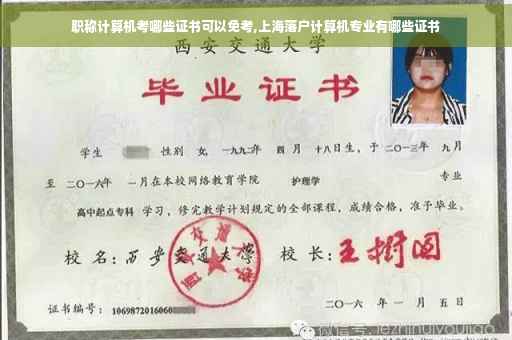 职称计算机考哪些证书可以免考,上海落户计算机专业有哪些证书
西安交通大学
毕业证书
学生 性别 女, 一九九二年 四月 十八日生, 于二〇一三年 九月
至 二〇一六年 一月在本校网络教育学院 护理学 专业
高中起点专科 学习, 修完教学计划规定的全部课程, 成绩合格, 准予毕业。
校 名: 西安交通大学 校 长: 王树国
证书编号: 1069872016060
二〇一六 年 一 月 五 日
微信号: jezhinuiyoujiao